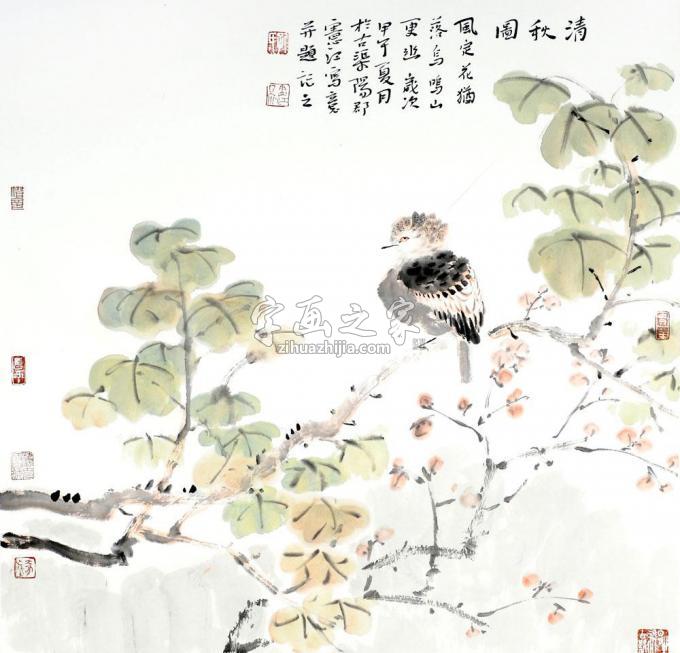 清秋圖
風定花猶
落鳥鳴山
更幽歲次
甲午夏月
於古渠陽郡
憲江寫意
并題記之
字画之家
zihuazhijia.com